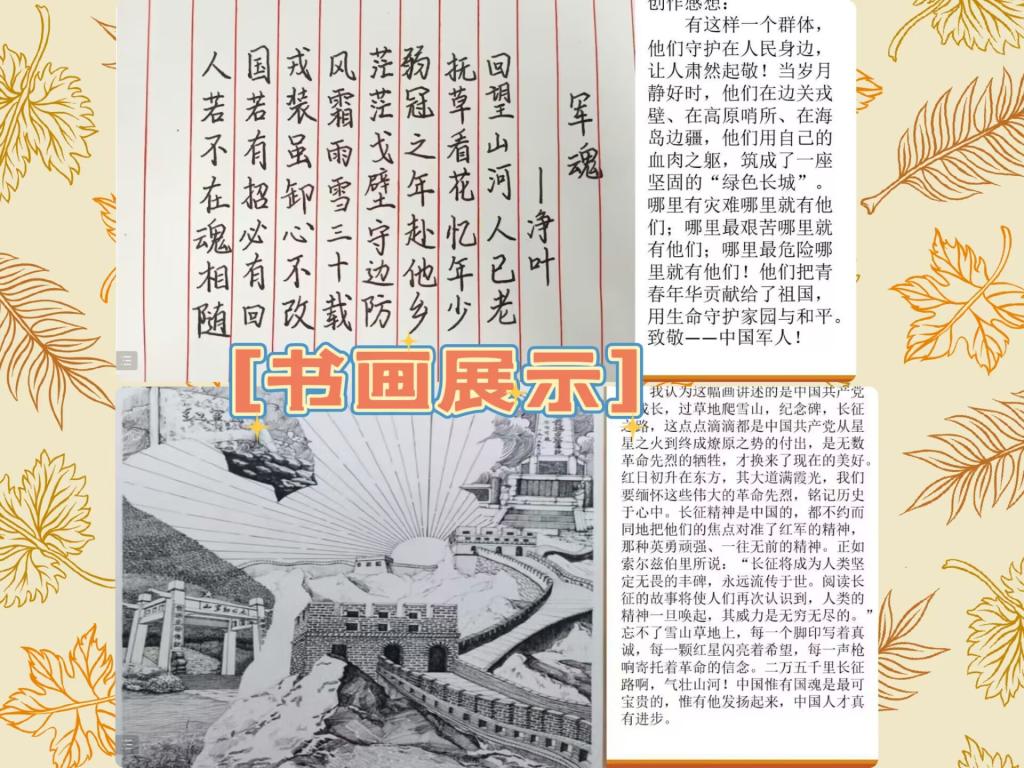 军魂
—净叶
回望山河人已老
抚草看花忆年少
弱冠之年赴他乡
茫茫戈壁守边防
风霜雨雪三十载
戎装虽卸心不改
国若有招必有回
人若不在魂相随
创作感想：
有这样一个群体，
他们守护在人民身边，
让人肃然起敬！当岁月
静好时，他们在边关戎
壁、在高原哨所、在海
岛边疆，他们用自己的
血肉之躯，筑成了一座
坚固的“绿色长城”。
哪里有灾难哪里就有他
们；哪里最艰苦哪里就
有他们；哪里最危险哪
里就有他们！他们把青
春年华贡献给了祖国，
用生命守护家园与和平。
致敬——中国军人！
[书画展示]
我认为这幅画讲述的是中国共产党
成长，过草地爬雪山，纪念碑，长征
之路，这点点滴滴都是中国共产党从星
星之火到终成燎原之势的付出，是无数
革命先烈的牺牲，才换来了现在的美好。
红日初升在东方，其大道满霞光，我们
要缅怀这些伟大的革命先烈，铭记历史
于心中。长征精神是中国的，都不约而
同地把他们的焦点对准了红军的精神，
那种英勇顽强、一往无前的精神。正如
索尔兹伯里所说：“长征将成为人类坚
定无畏的丰碑，永远流传于世。阅读长
征的故事将使人们再次认识到，人类的
精神一旦唤起，其威力是无穷无尽的。”
忘不了雪山草地上，每一个脚印写着真
诚，每一颗红星闪亮着希望，每一声枪
响寄托着革命的信念。二万五千里长征
路啊，气壮山河！中国惟有国魂是最可
宝贵的，惟有他发扬起来，中国人才真
有进步。